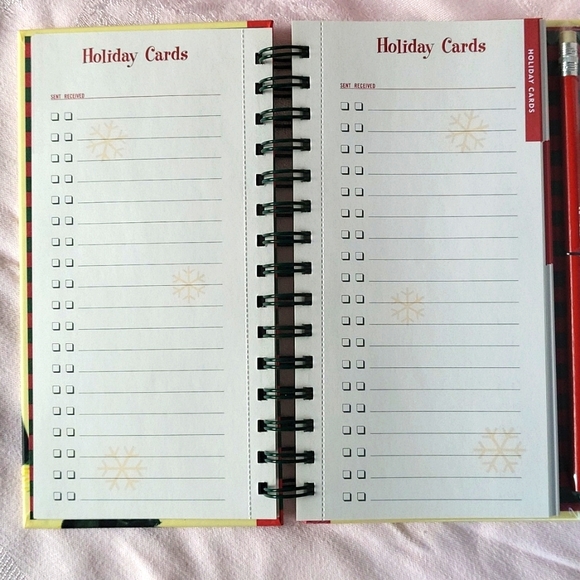 Holiday Cards
SENT RECEIVED
Holiday Cards
SENT RECEIVED
HOLIDAY CARDS